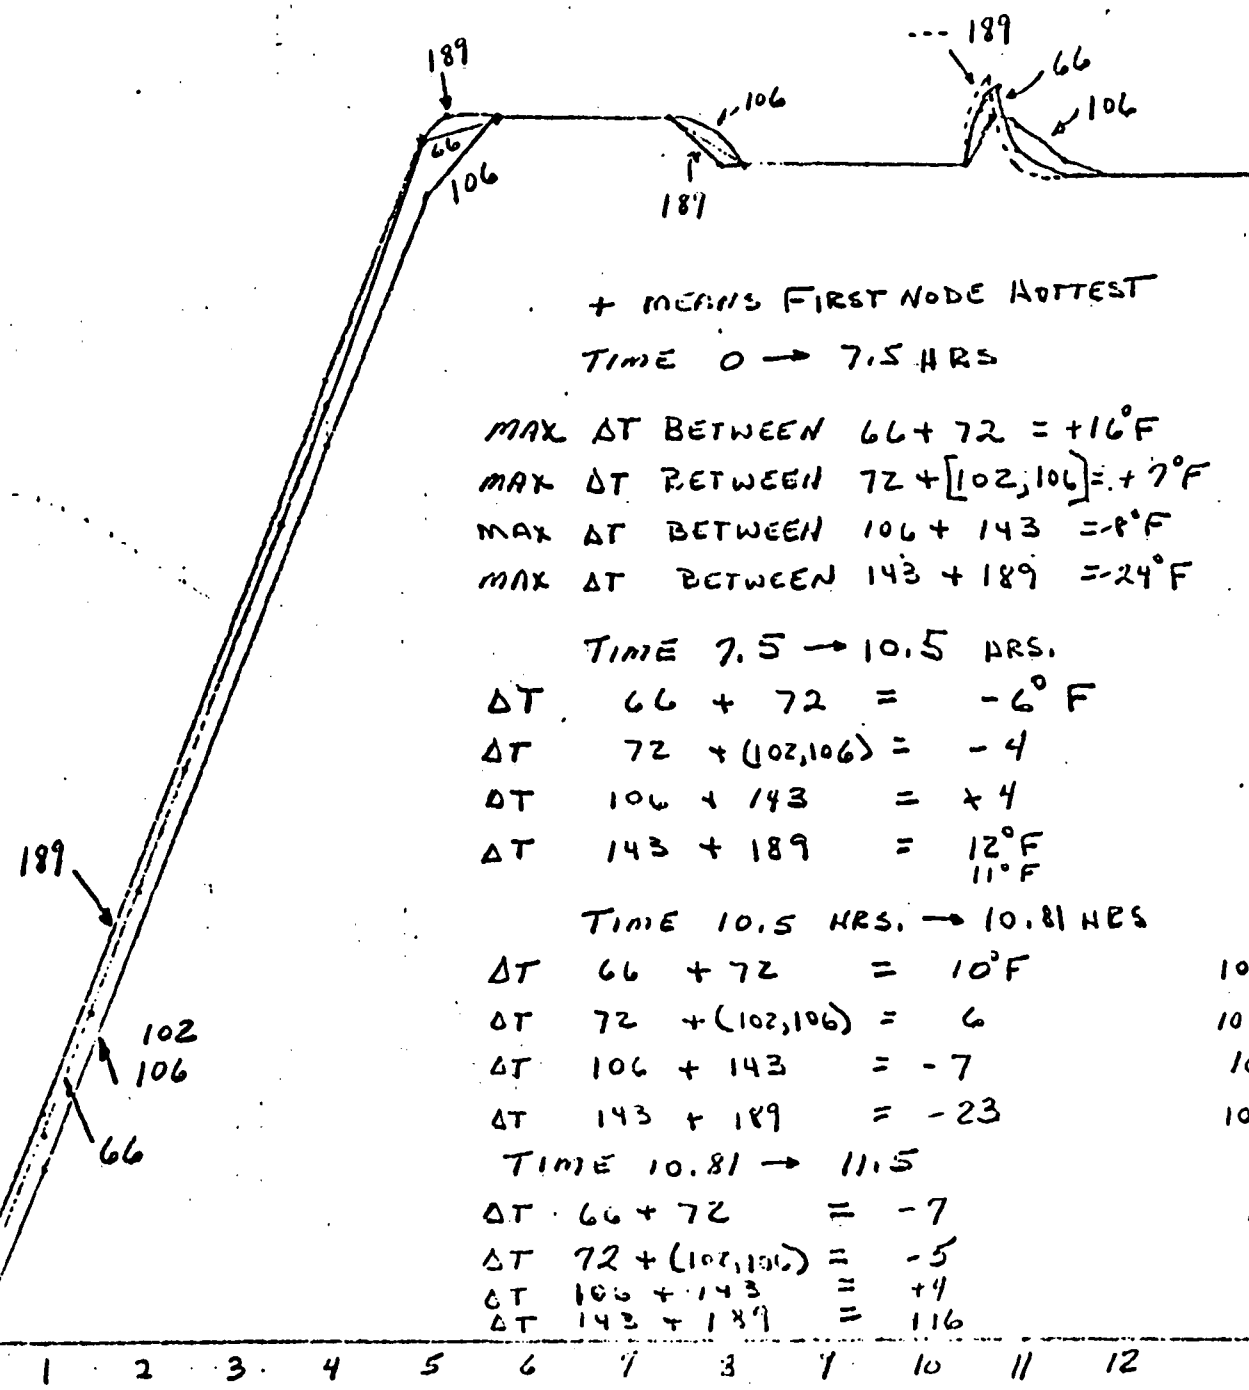 189
--- 189
66
106
106
66
106
189
+ MEANS FIRST NODE HOTTEST
TIME 0 → 7.5 HRS
MAX ΔT BETWEEN 66 + 72 = +16°F
MAX ΔT BETWEEN 72 + [102, 106] = + 7°F
MAX ΔT BETWEEN 106 + 143 = -8°F
MAX ΔT BETWEEN 143 + 189 = -24°F
TIME 7.5 → 10.5 HRS.
ΔT 66 + 72 = -6° F
ΔT 72 + (102,106) = - 4
ΔT 106 + 143 = + 4
ΔT 143 + 189 = 12°F
11°F
189
TIME 10.5 HRS. → 10.81 HRS
ΔT 66 + 72 = 10°F
ΔT 72 + (102,106) = 6
102
106
ΔT 106 + 143 = - 7
ΔT 143 + 189 = - 23
66
TIME 10.81 → 11.5
ΔT 66 + 72 = - 7
ΔT 72 + (102,106) = -5
ΔT 106 + 143 = +4
ΔT 143 + 189 =
1 2 3 4 5 6 7 8 9 10 11 12